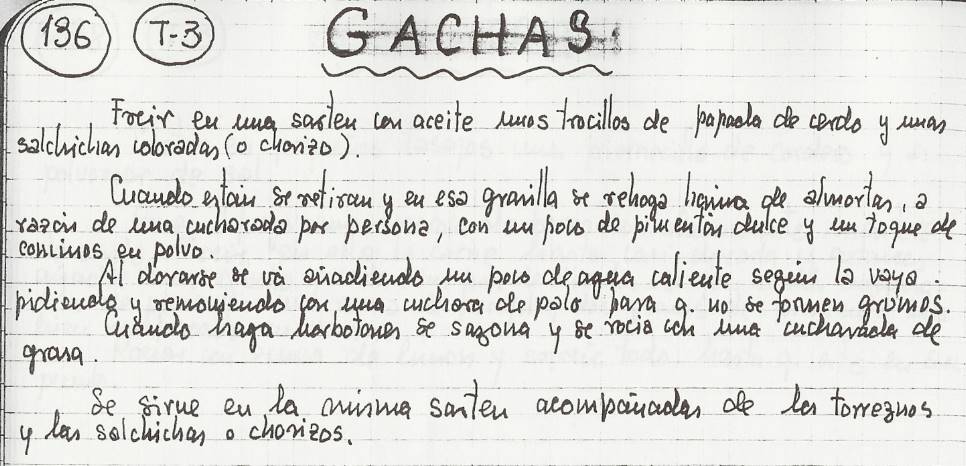 136 T-3 GACHAS:
Freir en una sarten con aceite unos trocillos de papada de cerdo y unas
salchichas coloradas (o chorizo).
Cuando están se retiran y en esa grasilla se rehoga harina de almortas, a
razón de una cucharada por persona, con un poco de pimentón dulce y un toque de
cominos en polvo.
Al dorarse se vá añadiendo un poco de agua caliente según la vaya
pidiendo y removiendo con una cuchara de palo para q. no se formen grumos.
Cuándo haga borbotones se sazona y se rocía con una cucharada de
grasa.
Se sirve en la misma sartén acompañadas de los torreznos
y las salchichas o chorizos.